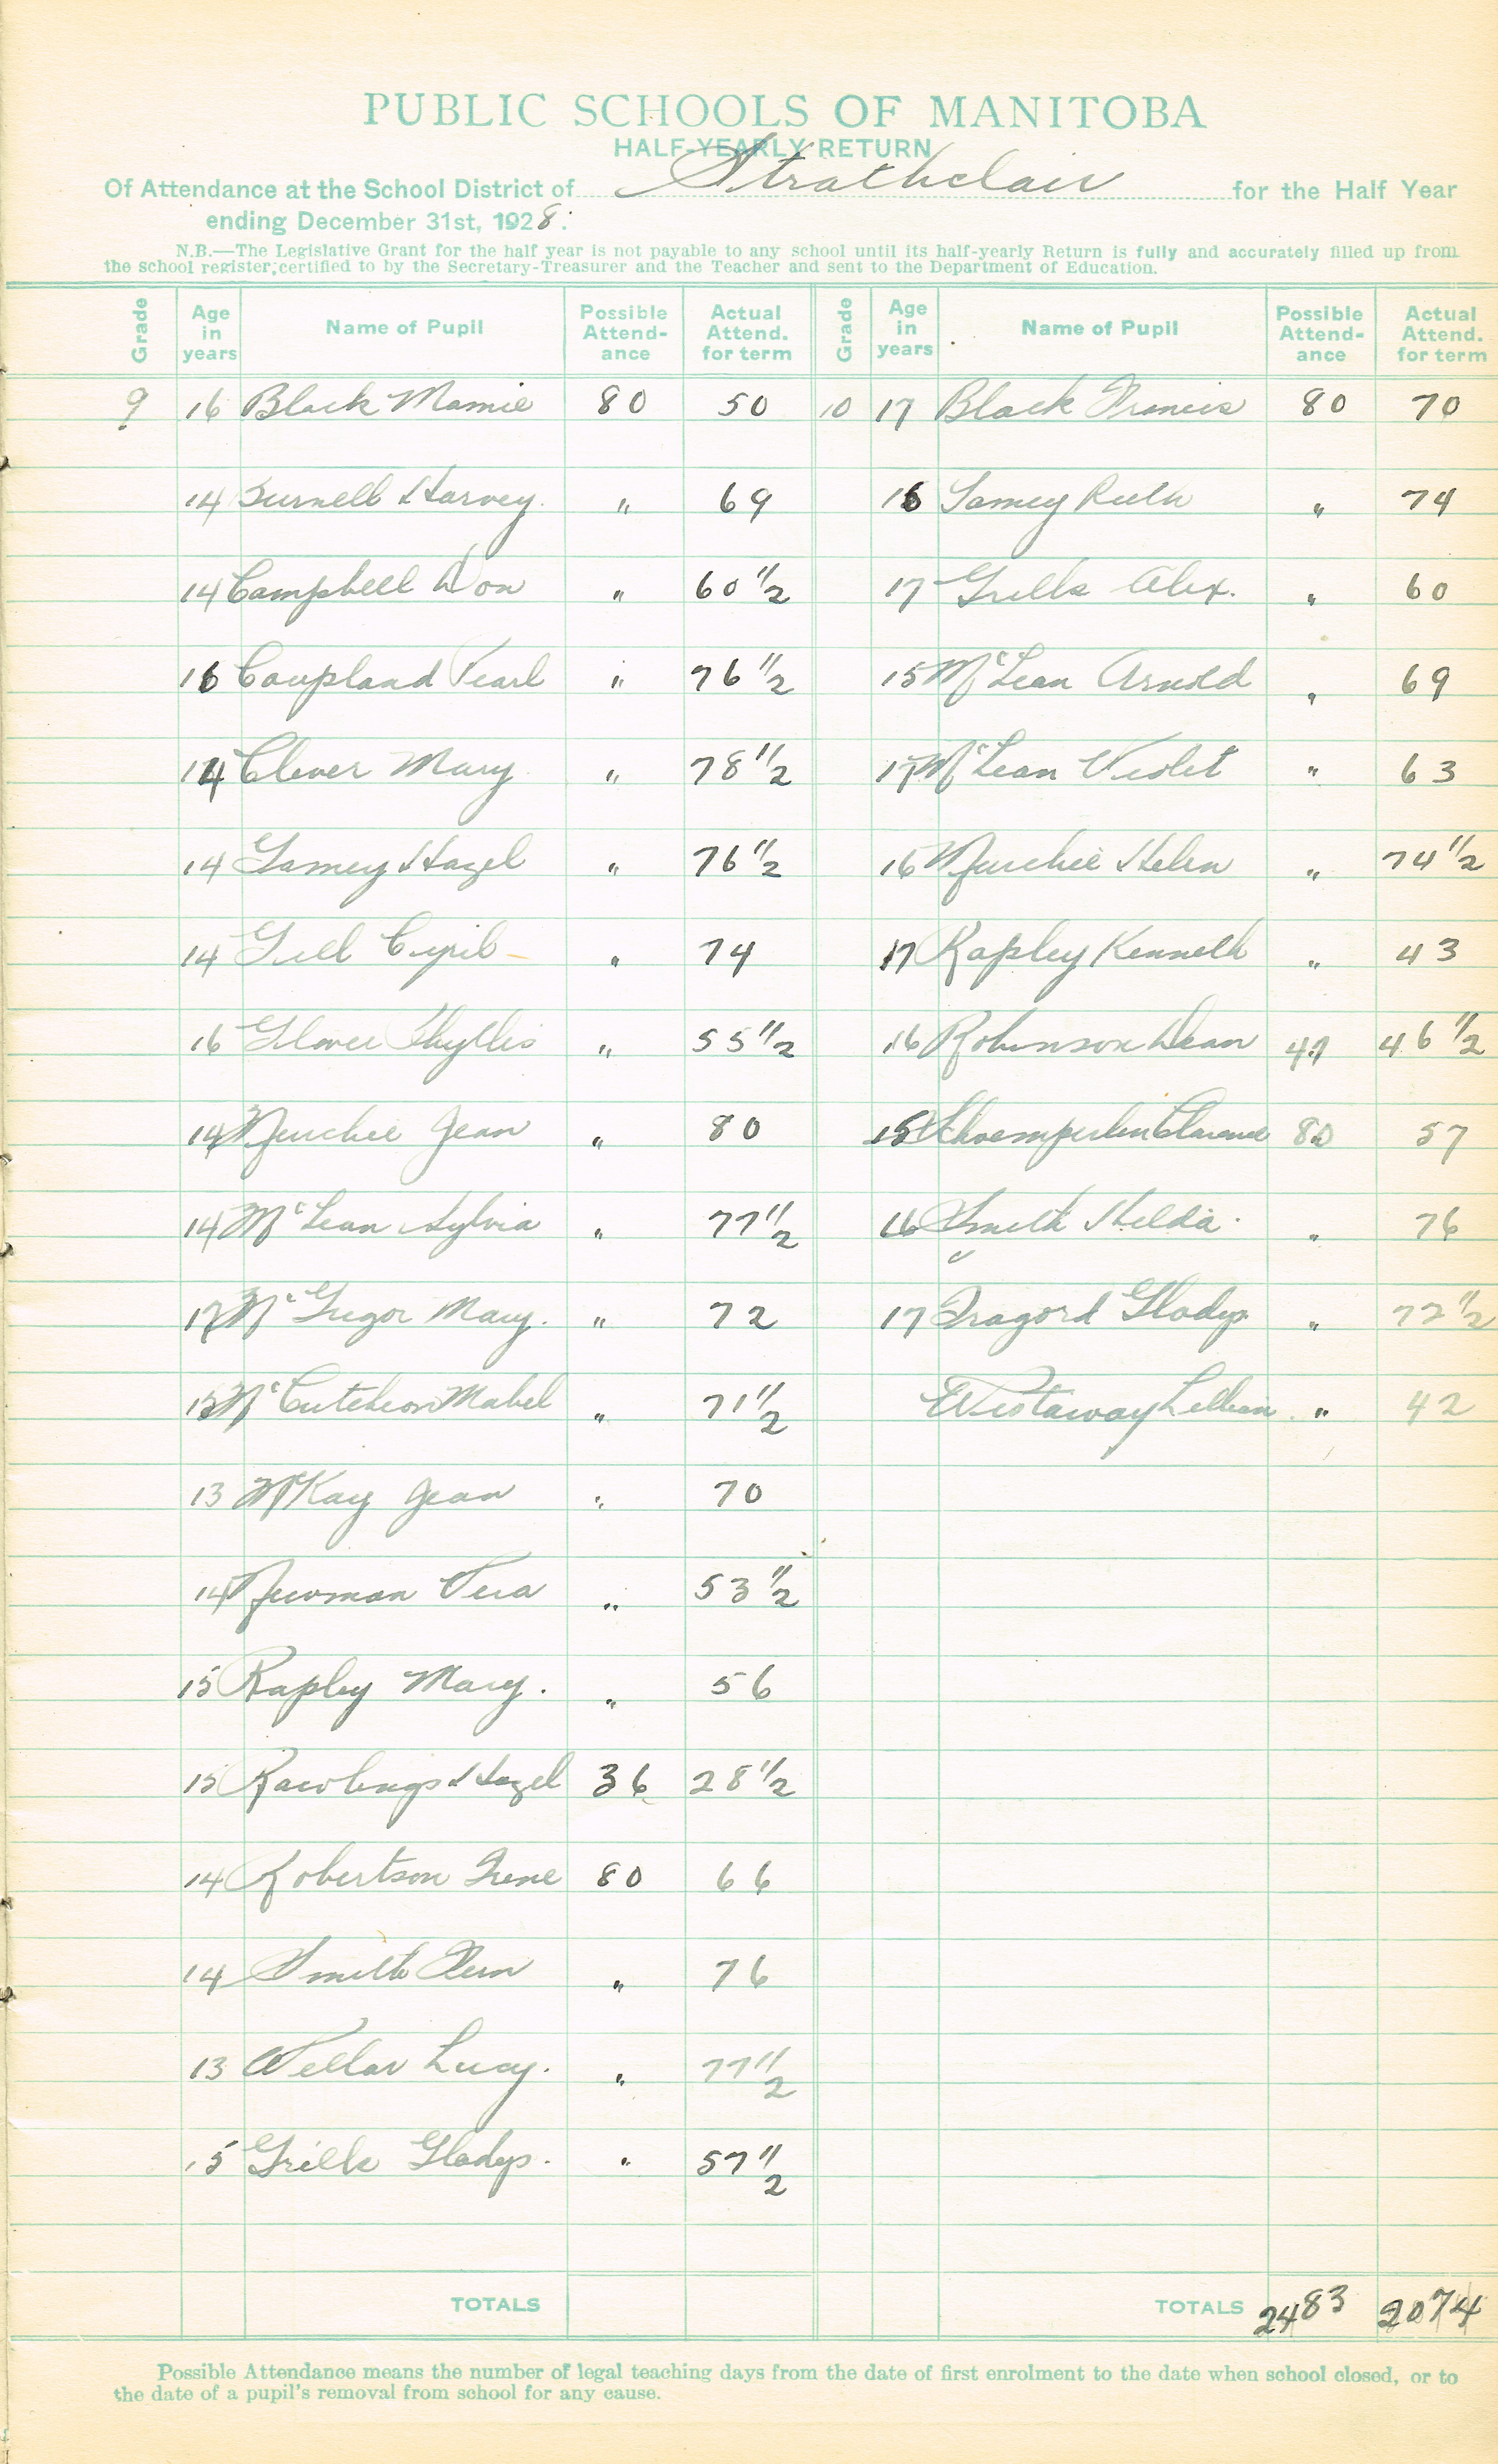 PUBLIC SCHOOLS OF MANITOBA
HALF-YEARLY RETURN
Of Attendance at the School District of Strathclair for the Half Year
ending December 31st, 1928.
N.B.—The Legislative Grant for the half year is not payable to any school until its half-yearly Return is fully and accurately filled up from
the school register, certified to by the Secretary-Treasurer and the Teacher and sent to the Department of Education.
Grade Age in years Name of Pupil Possible Attend-ance Actual Attend. for term Grade Age in years Name of Pupil Possible Attend-ance Actual Attend. for term
9 16 Black Mamie 80 50 10 17 Black Francis 80 70
14 Burnell Harvey. " 69 16 Gamey Ruth " 74
14 Campbell Don " 60 1/2 17 Grills Alex. " 60
16 Coupland Pearl " 76 1/2 15 McLean Arnold " 69
14 Clever Mary " 78 1/2 17 McLean Violet " 63
14 Gamey Hazel " 76 1/2 16 Murchie Helen " 74 1/2
14 Gill Cyril " 74 17 Rapley Kenneth " 43
16 Glover Phyllis " 55 1/2 16 Robinson Dean 47 46 1/2
14 Murchie Jean " 80 15 Shoemperlen Clarence 80 57
14 McLean Sylvia " 77 1/2 16 Smith Hilda. " 76
17 McGregor Mary. " 72 17 Tragord Gladys " 72 1/2
15 McCutcheon Mabel " 71 1/2 Westaway Lillian " 42
13 McKay Jean " 70
14 Newman Vera " 53 1/2
15 Rapley Mary. " 56
15 Rawlings Hazel 36 28 1/2
14 Robertson Irene 80 66
14 Smith Fern " 76
13 Wellar Lucy. " 77 1/2
15 Grills Gladys. " 57 1/2
TOTALS TOTALS 2483 2074
Possible Attendance means the number of legal teaching days from the date of first enrolment to the date when school closed, or to
the date of a pupil's removal from school for any cause.